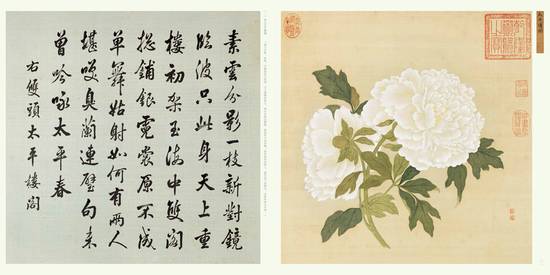 素雲分影一枝新對鏡
臨波只此身天上重
樓初架玉海中雙閣
總鋪銀霓裳原不成
單舞姑射如何有兩人
堪咲臭蘭連璧句未
曾吟詠太平春
右雙頭太平樓閣